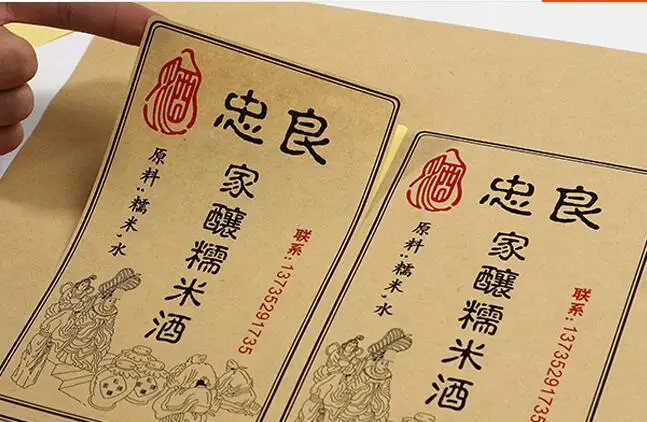 酒
忠良
家釀糯米酒
原料:糯米、水
联系:13735291735
酒
忠良
家釀糯米酒
原料:糯米、水
联系:13735291735